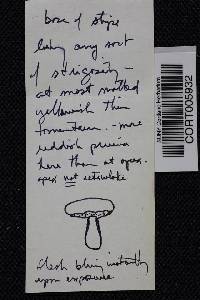 base of stipe
lacking any sort
of strigosity –
at most matted
yellowish thin
tomentum. – more
reddish pruina
here than at apex.
apex not reticulate
flesh bluing instantly
upon exposure
CORT005932